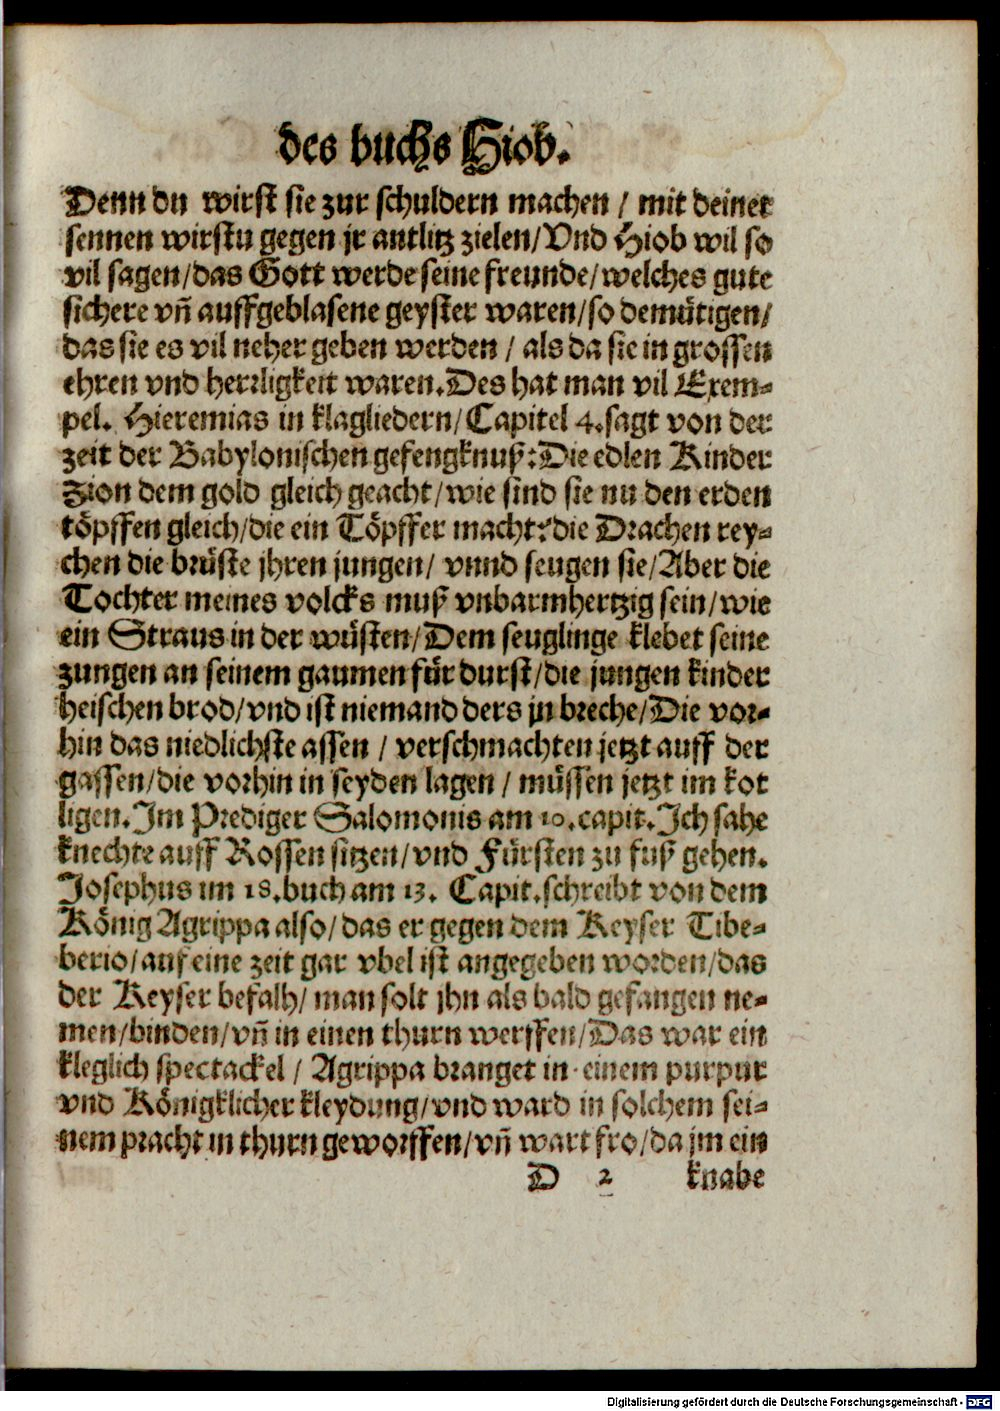 des buchs Hiob.
Denn du wirst sie zur schuldern machen / mit deiner
sennen wirstu gegen jr antlitz zielen/Vnd Hiob wil so
vil sagen/das Gott werde seine freunde/welches gute
sichere vn̄ auffgeblasene geyster waren/so demütigen/
das sie es vil neher geben werden / als da sie in grossen
ehren vnd herrligkeit waren.Des hat man vil Exem-
pel. Hieremias in klagliedern/Capitel 4.sagt von der
zeit der Babylonischen gefengknuß:Die edlen Kinder
Zion dem gold gleich geacht/wie sind sie nu den erden
töpffen gleich/die ein Töpffer macht?die Drachen rey-
chen die brüste jhren jungen/ vnnd seugen sie/Aber die
Tochter meines volcks muß vnbarmhertzig sein/wie
ein Straus in der wüsten/Dem seuglinge klebet seine
zungen an seinem gaumen für durst/die jungen kinder
heischen brod/vnd ist niemand ders jn breche/Die vor-
hin das niedlichste assen / verschmachten jetzt auff der
gassen/die vorhin in seyden lagen / müssen jetzt im kot
ligen.Im Prediger Salomonis am 10.capit.Ich sahe
knechte auff Rossen sitzen/vnd Fürsten zu fuß gehen.
Josephus im 18.buch am 13. Capit.schreibt von dem
König Agrippa also/das er gegen dem Keyser Tibe-
berio/auf eine zeit gar vbel ist angegeben worden/das
der Keyser befalh/ man solt jhn als bald gefangen ne-
men/binden/vn̄ in einen thurn werffen/Das war ein
kleglich spectackel / Agrippa branget in einem purpur
vnd Königklicher kleydung/vnd ward in solchem sei-
nem pracht in thurn geworffen/vn̄ wart fro/da jm ein
D 2 knabe
Digitalisierung gefördert durch die Deutsche Forschungsgemeinschaft - DFG